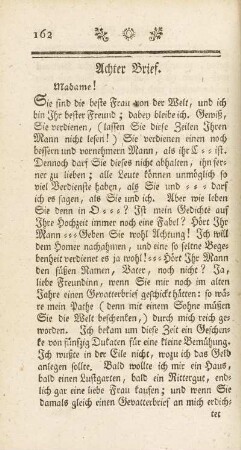 162
Achter Brief.
Madame!
Sie sind die beste Frau von der Welt, und ich
bin Ihr bester Freund; dabey bleibe ich. Gewiß,
Sie verdienen, (lassen Sie diese Zeilen Ihren
Mann nicht lesen!) Sie verdienen einen noch
bessern und vornehmern Mann, als ihr C = = ist.
Dennoch darf Sie dieses nicht abhalten, ihn fer-
ner zu lieben; alle Leute können unmöglich so
viel Verdienste haben, als Sie und = = = darf
ich es sagen, als Sie und ich. Aber wie leben
Sie denn in O = = = ? Ist mein Gedicht auf
Ihre Hochzeit immer noch eine Fabel? Hört Ihr
Mann = = = Geben Sie wohl Achtung! Ich will
dem Homer nachahmen, und eine so seltne Bege-
benheit verdienet es ja wohl! = = = Hört Ihr Mann
den süßen Namen, Vater, noch nicht? Ja,
liebe Freundinn, wenn Sie mir noch im alten
Jahre einen Gevatterbrief geschickt hätten; so wäre
mein Pathe (denn mit einem Sohne müßten
Sie die Welt beschenken,) durch mich reich ge-
worden. Ich bekam um diese Zeit ein Geschen-
ke von funfzig Dukaten für eine kleine Bemühung.
Ich wußte in der Eile nicht, wozu ich das Geld
anlegen sollte. Bald wollte ich mir ein Haus,
bald einen Lustgarten, bald ein Rittergut, end-
lich gar eine liebe Frau kaufen; und wenn Sie
damals gleich einen Gevatterbrief an mich erdich-
tet